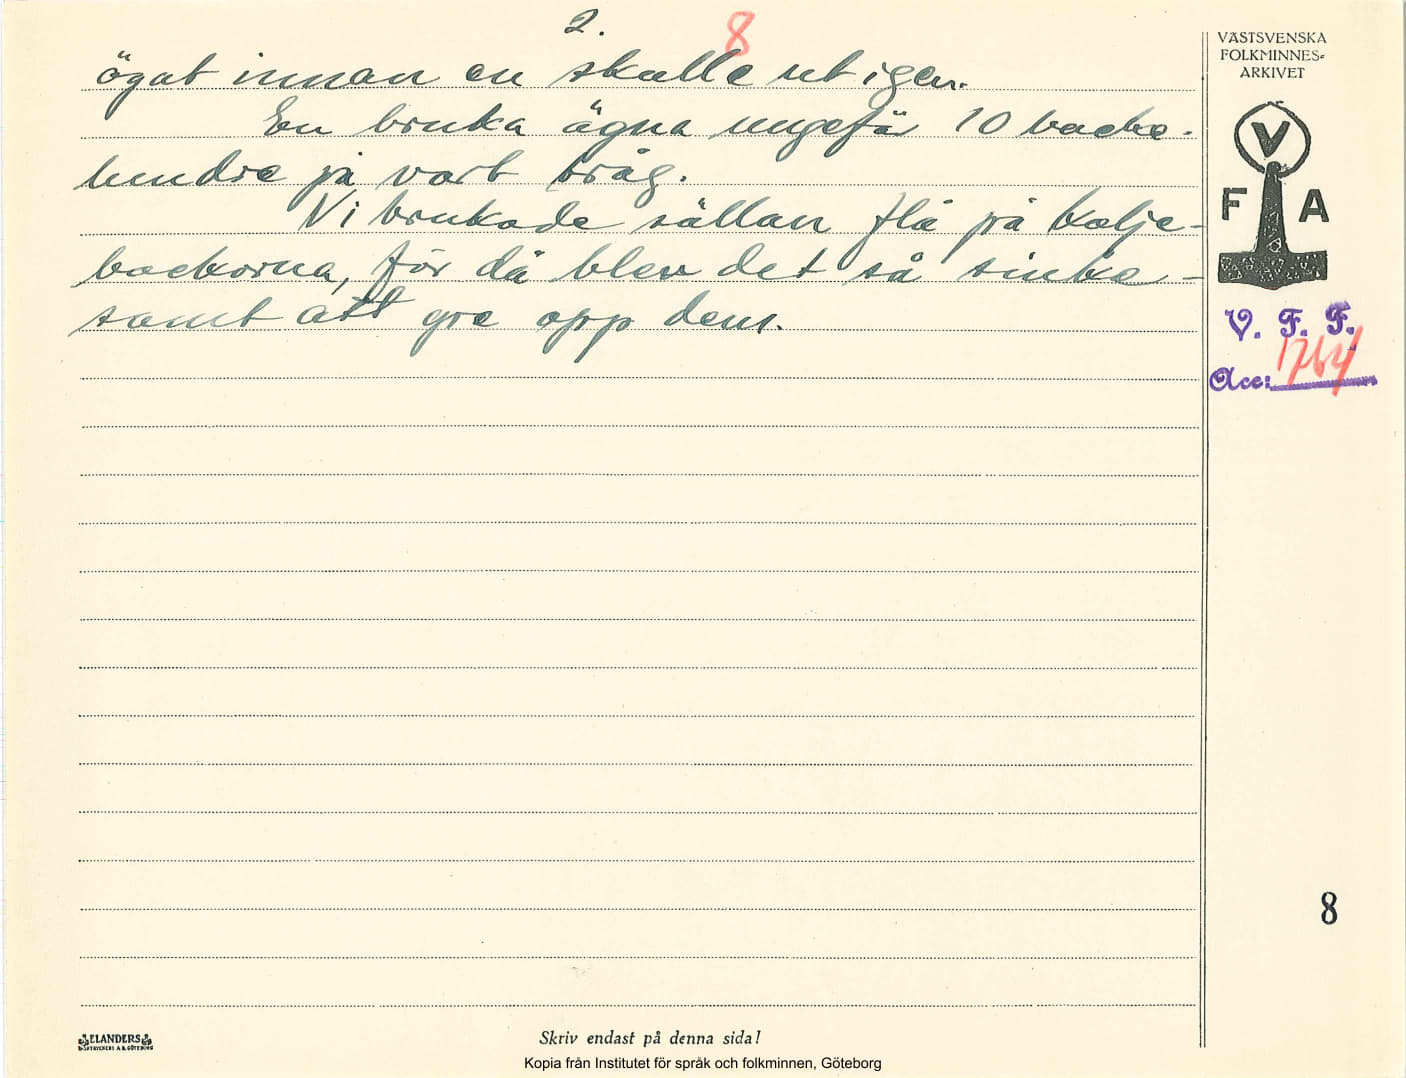 2.
8
ögat innan en skulle ut igen.
En bruka ägna ungefär 10 backe-
hundre på vart tråg.
Vi brukade sällan flå på kolje-
backorna, för då blev det så sinke-
samt att gre opp dem.
VÄSTSVENSKA
FOLKMINNES-
ARKIVET
V
F A
V. F. F.
Acc: 1764
8
ELANDERS
BOKTRYCKERI A.B. GÖTEBORG
Skriv endast på denna sida!
Kopia från Institutet för språk och folkminnen, Göteborg